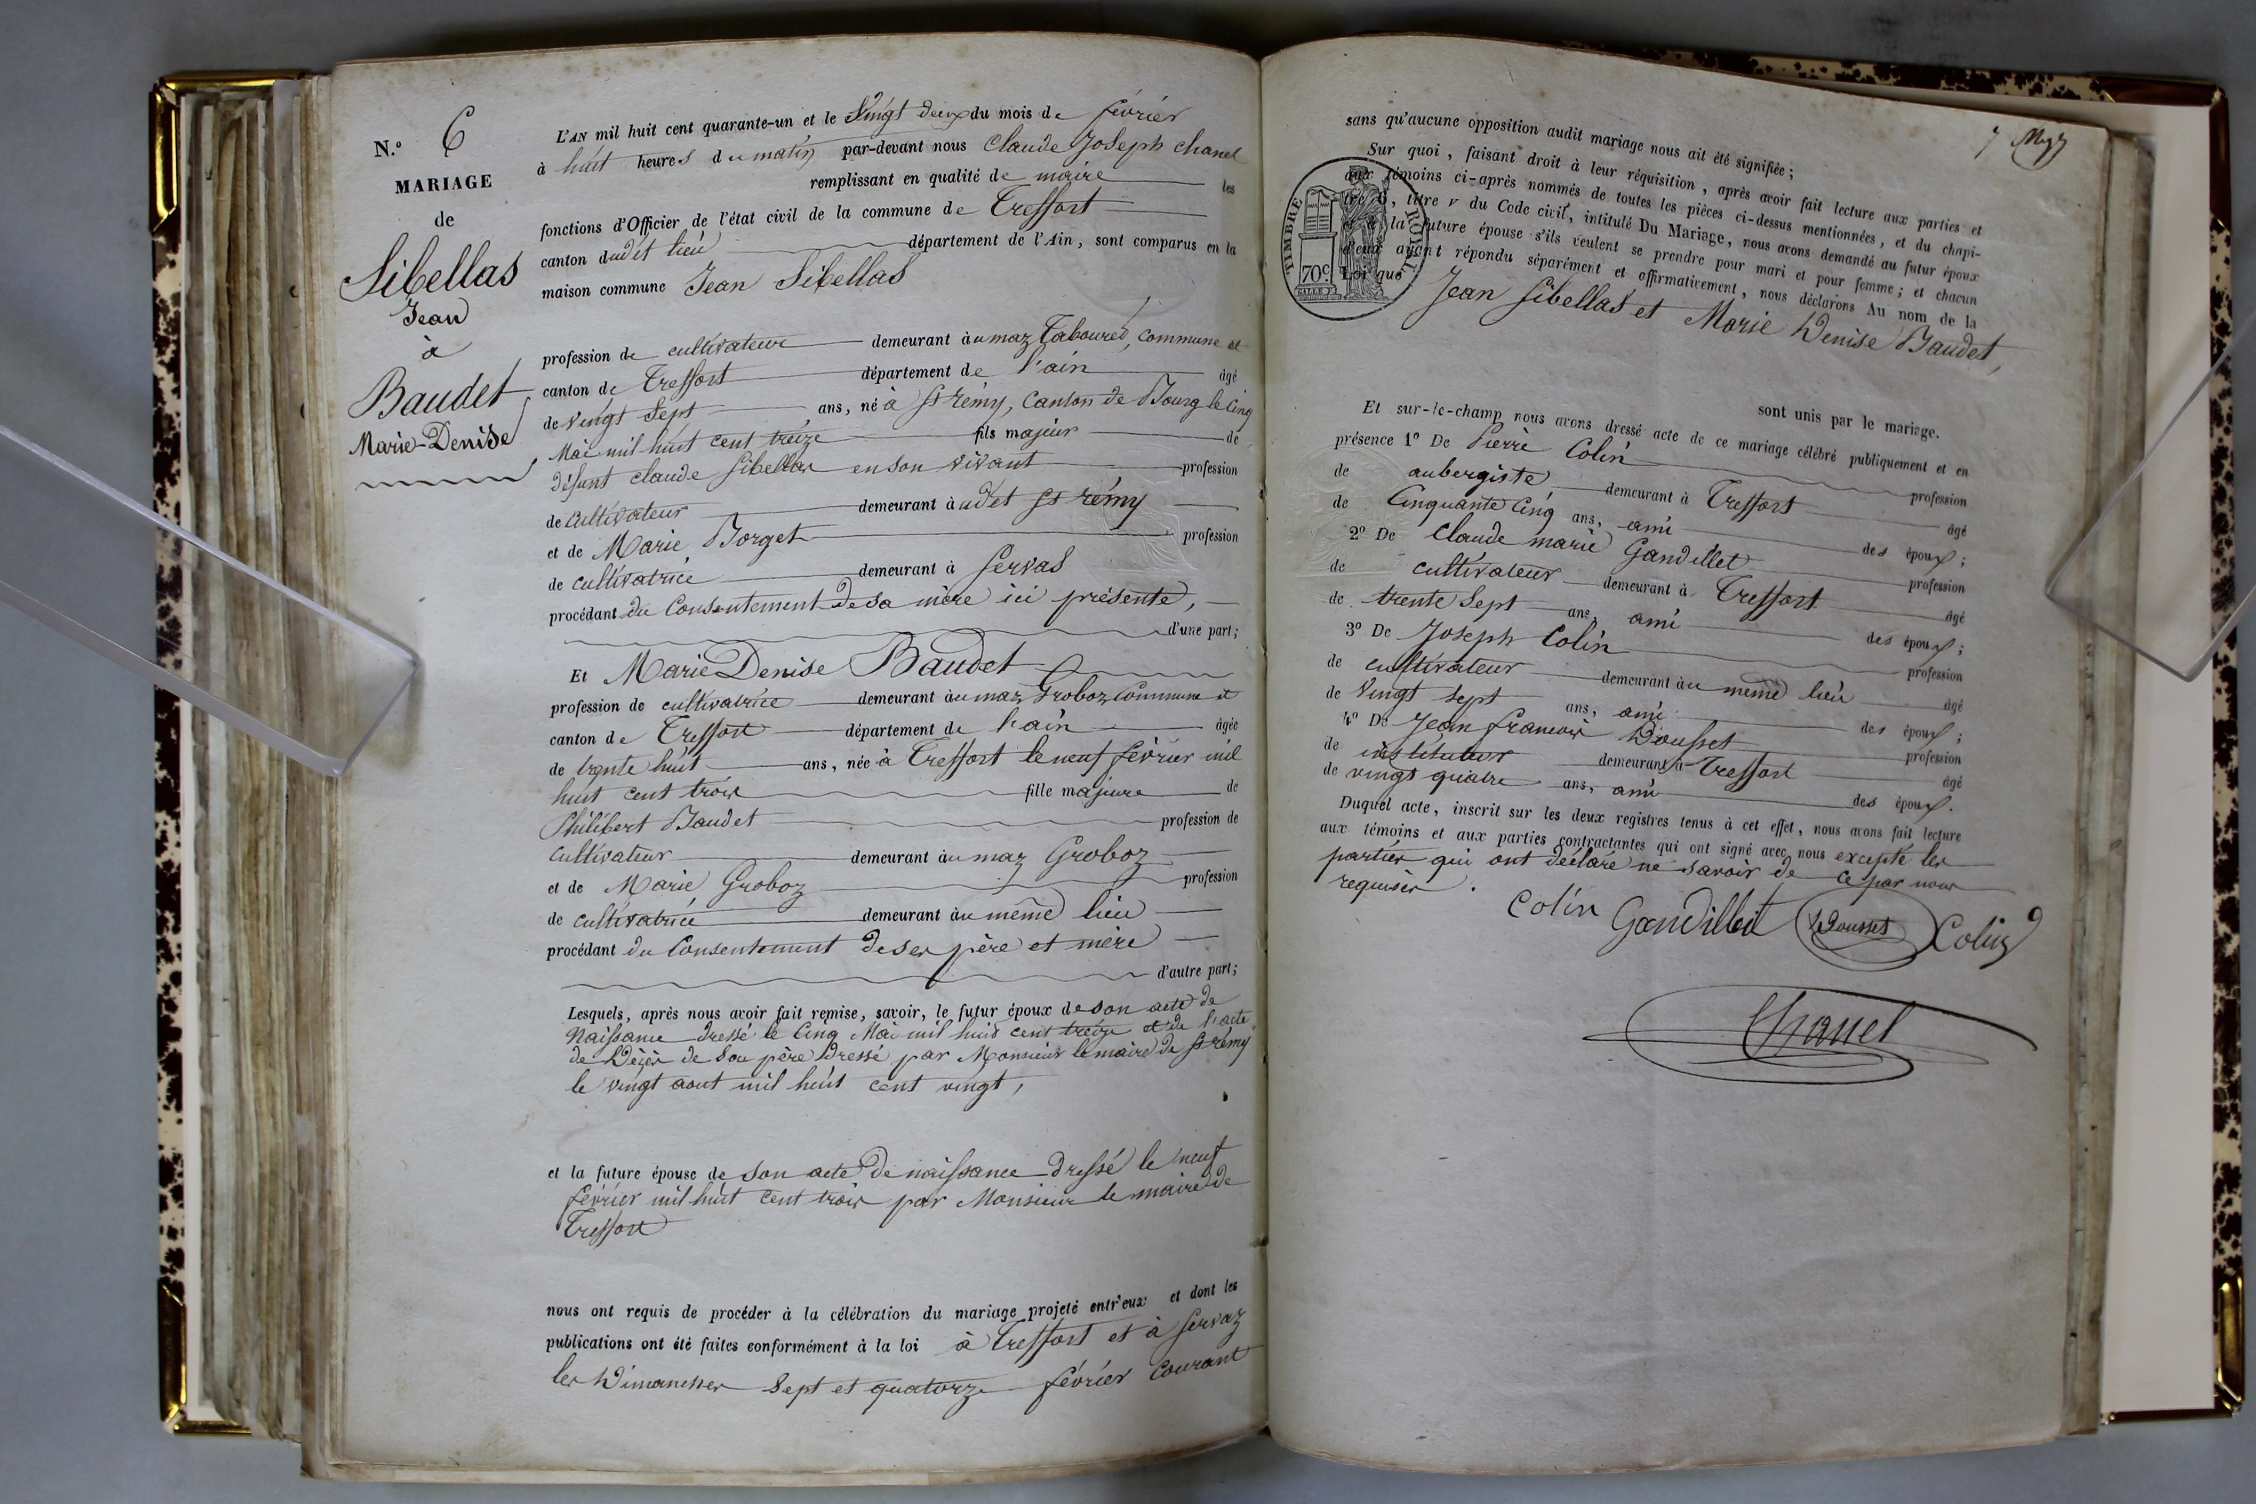 N.° 6
MARIAGE
de
Sibellas
Jean
à
Baudet
Marie-Denise
L'AN mil huit cent quarante-un et le Vingt deux du mois de février
à huit heures du matin par-devant nous Claude Joseph Chanel
remplissant en qualité de maire les
fonctions d'Officier de l'état civil de la commune de Treffort
canton dudit lieu département de l'Ain, sont comparus en la
maison commune Jean Sibellas
profession de cultivateur demeurant au maz Tabouret, commune et
canton de Treffort département de l'ain âgé
de vingt sept ans, né à St rémy, canton de Bourg le cinq
Mai mil huit cent treize fils majeur de
défunt claude Sibellas en son vivant profession
de cultivateur demeurant audet St rémy
et de Marie Borget profession
de cultivatrice demeurant à Servas
procédant du Consentement de sa mère ici présente,
d'une part;
Et Marie Denise Baudet
profession de cultivatrice demeurant au maz Groboz commune et
canton de Treffort département de l'ain âgée
de trente huit ans, née à Treffort le neuf février mil
huit cent trois fille majeure de
Philibert Baudet profession de
cultivateur demeurant au maz Groboz
et de Marie Groboz profession
de cultivatrice demeurant au même lieu
procédant du Consentement de ses père et mère
d'autre part;
Lesquels, après nous avoir fait remise, savoir, le futur époux de son acte de
Naissance dressé le Cinq Mai mil huit cent treize et de l'acte
de Décès de Son père dressé par Monsieur le maire de St rémy
le vingt aout mil huit cent vingt,
et la future épouse de son acte de naissance dressé le neuf
février mil huit cent trois par Monsieur le maire de
Treffort
nous ont requis de procéder à la célébration du mariage projeté entr'eux et dont les
publications ont été faites conformément à la loi à Treffort et à Servaz
les Dimanches Sept et quatorze février courant
7
sans qu'aucune opposition audit mariage nous ait été signifiée;
Sur quoi, faisant droit à leur réquisition, après avoir fait lecture aux parties et
aux témoins ci-après nommés de toutes les pièces ci-dessus mentionnées, et du chapi-
tre 6, titre v du Code civil, intitulé Du Mariage, nous avons demandé au futur époux
et à la future épouse s'ils veulent se prendre pour mari et pour femme; et chacun
d'eux ayant répondu séparément et affirmativement, nous déclarons Au nom de la
Loi que Jean Sibellas et Marie Denise Baudet,
TIMBRE ROYAL
70c.
sont unis par le mariage.
Et sur-le-champ nous avons dressé acte de ce mariage célébré publiquement et en
présence 1° De Pierre Colin profession
de aubergiste demeurant à Treffort âgé
de Cinquante Cinq ans, ami des époux;
2° De Claude marie Gandillet profession
de cultivateur demeurant à Treffort âgé
de trente Sept ans, ami des époux;
3° De Joseph Colin profession
de cultivateur demeurant au même lieu âgé
de vingt sept ans, ami des époux;
4° De Jean françois Dousset profession
de instituteur demeurant à Treffort âgé
de vingt quatre ans, ami des époux.
Duquel acte, inscrit sur les deux registres tenus à cet effet, nous avons fait lecture
aux témoins et aux parties contractantes qui ont signé avec nous excepté les
parties qui ont déclaré ne savoir de ce par nous
requises.
Colin Gandillet Dousset Colin
Chanel